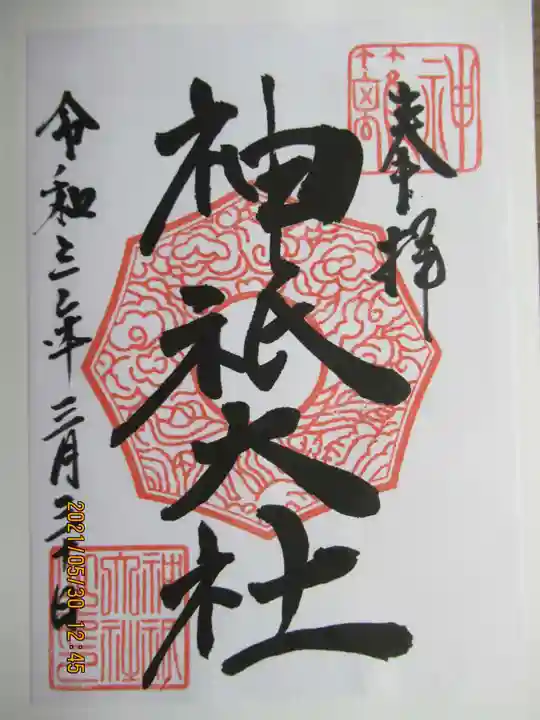 奉拝
神祇大社
令和三年三月三十日
神祇大社
2021/05/30 12:45